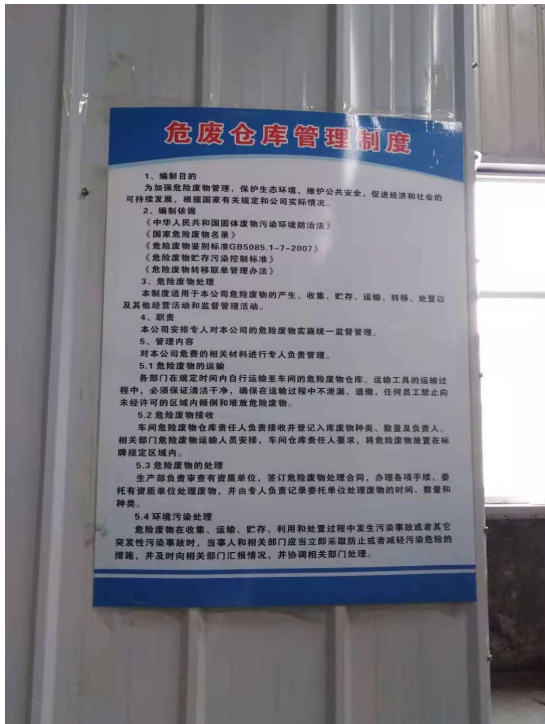 危废仓库管理制度
1、编制目的
为加强危险废物管理，保护生态环境，维护公共安全，促进经济和社会的
可持续发展，根据国家有关规定和公司实际情况。
2、编制依据
《中华人民共和国固体废物污染环境防治法》
《国家危险废物名录》
《危险废物鉴别标准GB5085.1-7-2007》
《危险废物贮存污染控制标准》
《危险废物转移联单管理办法》
3、危险废物处理
本制度适用于本公司危险废物的产生、收集、贮存、运输、转移、处置以
及其他经营活动和监督管理活动。
4、职责
本公司安排专人对本公司的危险废物实施统一监督管理。
5、管理内容
对本公司危费的相关材料进行专人负责管理。
5.1 危险废物的运输
各部门在规定时间内自行运输至车间的危险废物仓库。运输工具的运输过
程中，必须保证清洁干净，确保在运输过程中不泄漏、遗撒，任何员工禁止向
未经许可的区域内倾倒和堆放危险废物。
5.2 危险废物接收
车间危险废物仓库责任人负责接收并登记入库废物种类、数量及负责人。
相关部门危险废物运输人员安排，车间仓库责任人要求，将危险废物放置在标
牌规定区域内。
5.3 危险废物的处理
生产部负责审查有资质单位，签订危险废物处理合同，办理各项手续，委
托有资质单位处理废物，并由专人负责记录委托单位处理废物的时间、数量和
种类。
5.4 环境污染处理
危险废物在收集、运输、贮存、利用和处置过程中发生污染事故或者其它
突发性污染事故时，当事人和相关部门应当立即采取防止或者减轻污染危险的
措施，并及时向相关部门汇报情况，并协调相关部门处理。